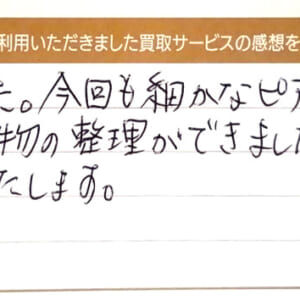 利用いただきました買取サービスの感想を
た。今回も細かなピア
物の整理ができました
たします。